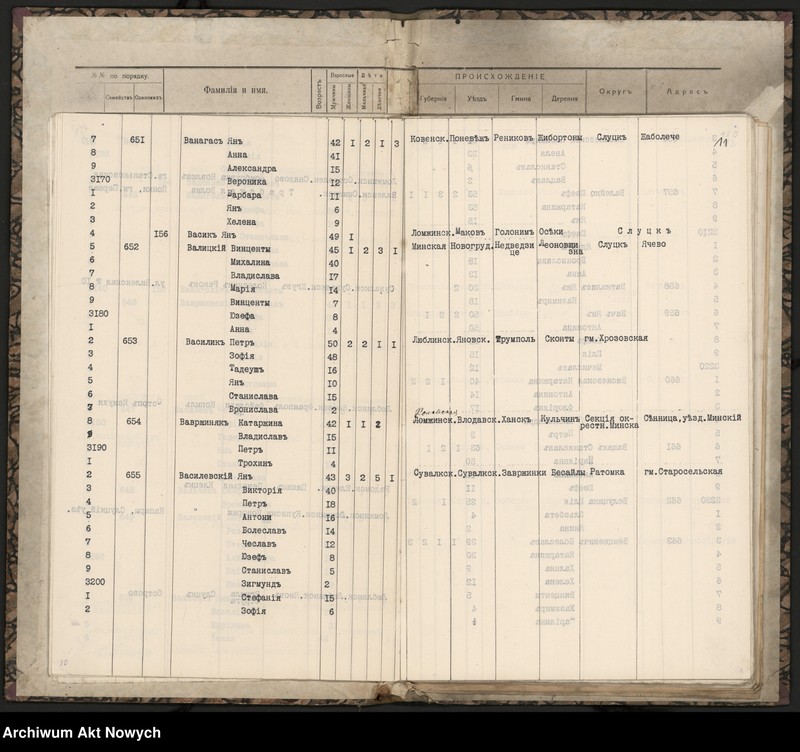 №№ по порядку.
Семействъ Одиночекъ
Фамилія и имя.
Возрастъ
Взрослые
Дѣти
Мужчины
Женщины
Мальчики
Дѣвочки
ПРОИСХОЖДЕНІЕ
Губернія Уѣздъ Гмина Деревня
Округъ
Адресъ
11
7 651 Ванагасъ Янъ 42 1 2 1 3 Ковенск. Поневѣжъ Рениковъ Жибортоны Слуцкъ Жаболече
8 Анна 41
9 Александра 15
3170 Вероника 12
1 Барбара 11
2 Янъ 6
3 Хелена 9
4 156 Васикъ Янъ 49 1 Ломжинск. Маковъ Голонимъ Осѣки Слуцкъ
5 652 Валицкій Винценты 45 1 2 3 1 Минская Новогруд. Недведзи Леоновщи Слуцкъ Ячево
це зна
6 Михалина 40
7 Владислава 17
8 Марія 14
9 Винценты 7
3180 Юзефа 8
1 Анна 4
2 653 Василикъ Петръ 50 2 2 1 1 Люблинск. Яновск. Трумполь Сконты гм.Хрозовская
3 Зофія 48
4 Тадеушъ 16
5 Янъ 10
6 Станислава 15
7 Бронислава 2
8 654 Вавржинякъ Катаржина 42 1 1 2 Ломжинск. Влодавск. Ханскъ Кульчинъ Секція ок- Сѣнница,уѣзд.Минскій
рестн.Минска
9 Владиславъ 15
3190 Петръ 11
1 Трохинъ 4
2 655 Василевскій Янъ 43 3 2 5 1 Сувалкск. Сувалкск. Завржинки Бесайлы Ратомка гм.Старосельская
3 Викторія 40
4 Петръ 18
5 " Антони 16
6 Болеславъ 14
7 Чеславъ 12
8 Юзефъ 8
9 Станиславъ 5
3200 Зигмундъ 2
1 Стефанія 15
2 Зофія 6
Archiwum Akt Nowych